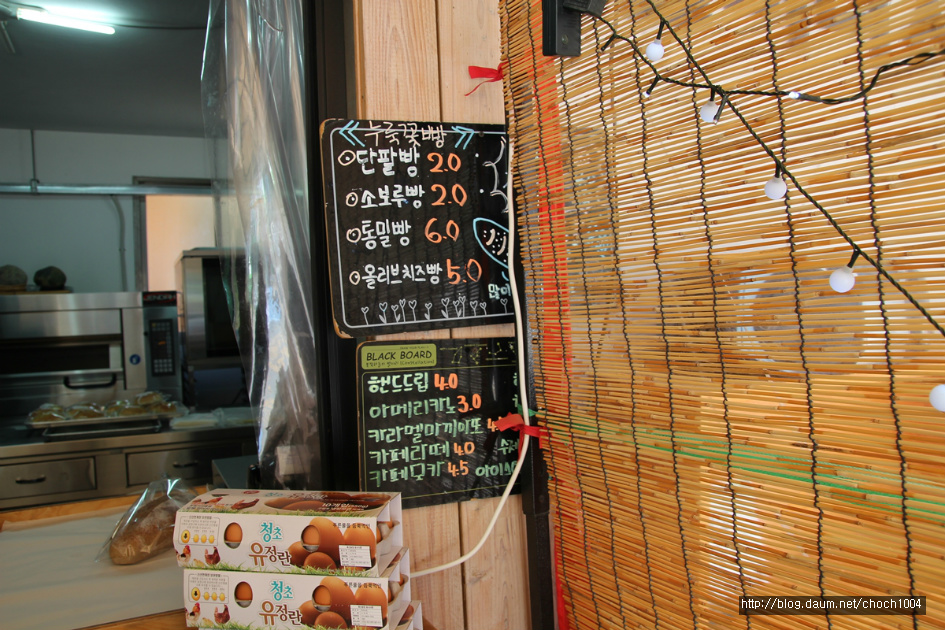 누룩꽃빵
단팥빵 2.0
소보루빵 2.0
통밀빵 6.0
올리브치즈빵 5.0
많이
BLACK BOARD
핸드드립 4.0
아메리카노 3.0
카라멜마끼아또 4.
카페라떼 4.0 수제
카페모카 4.5 아이스
청초
유정란
청초
유정란
http://blog.daum.net/choch1004